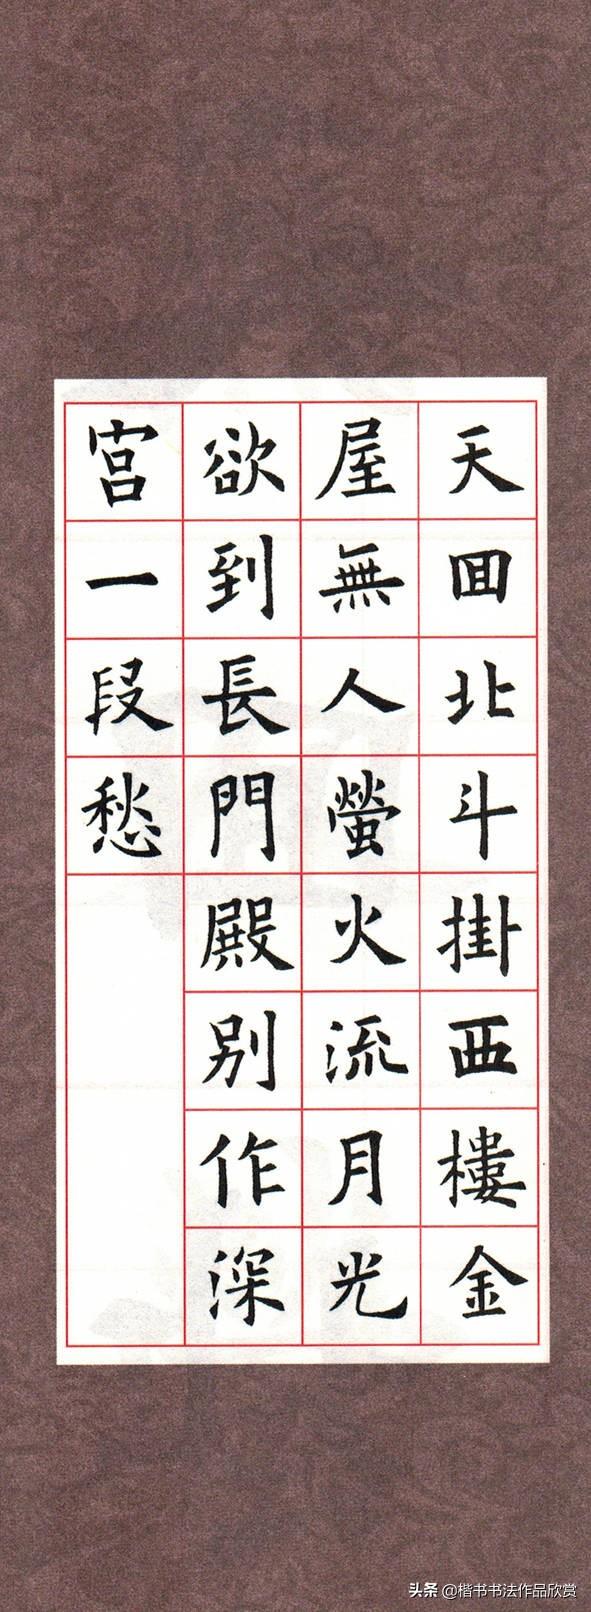 天囬北斗掛西樓金
屋無人螢火流月光
欲到長門殿別作深
宮一段愁
头条 @楷书书法作品欣赏